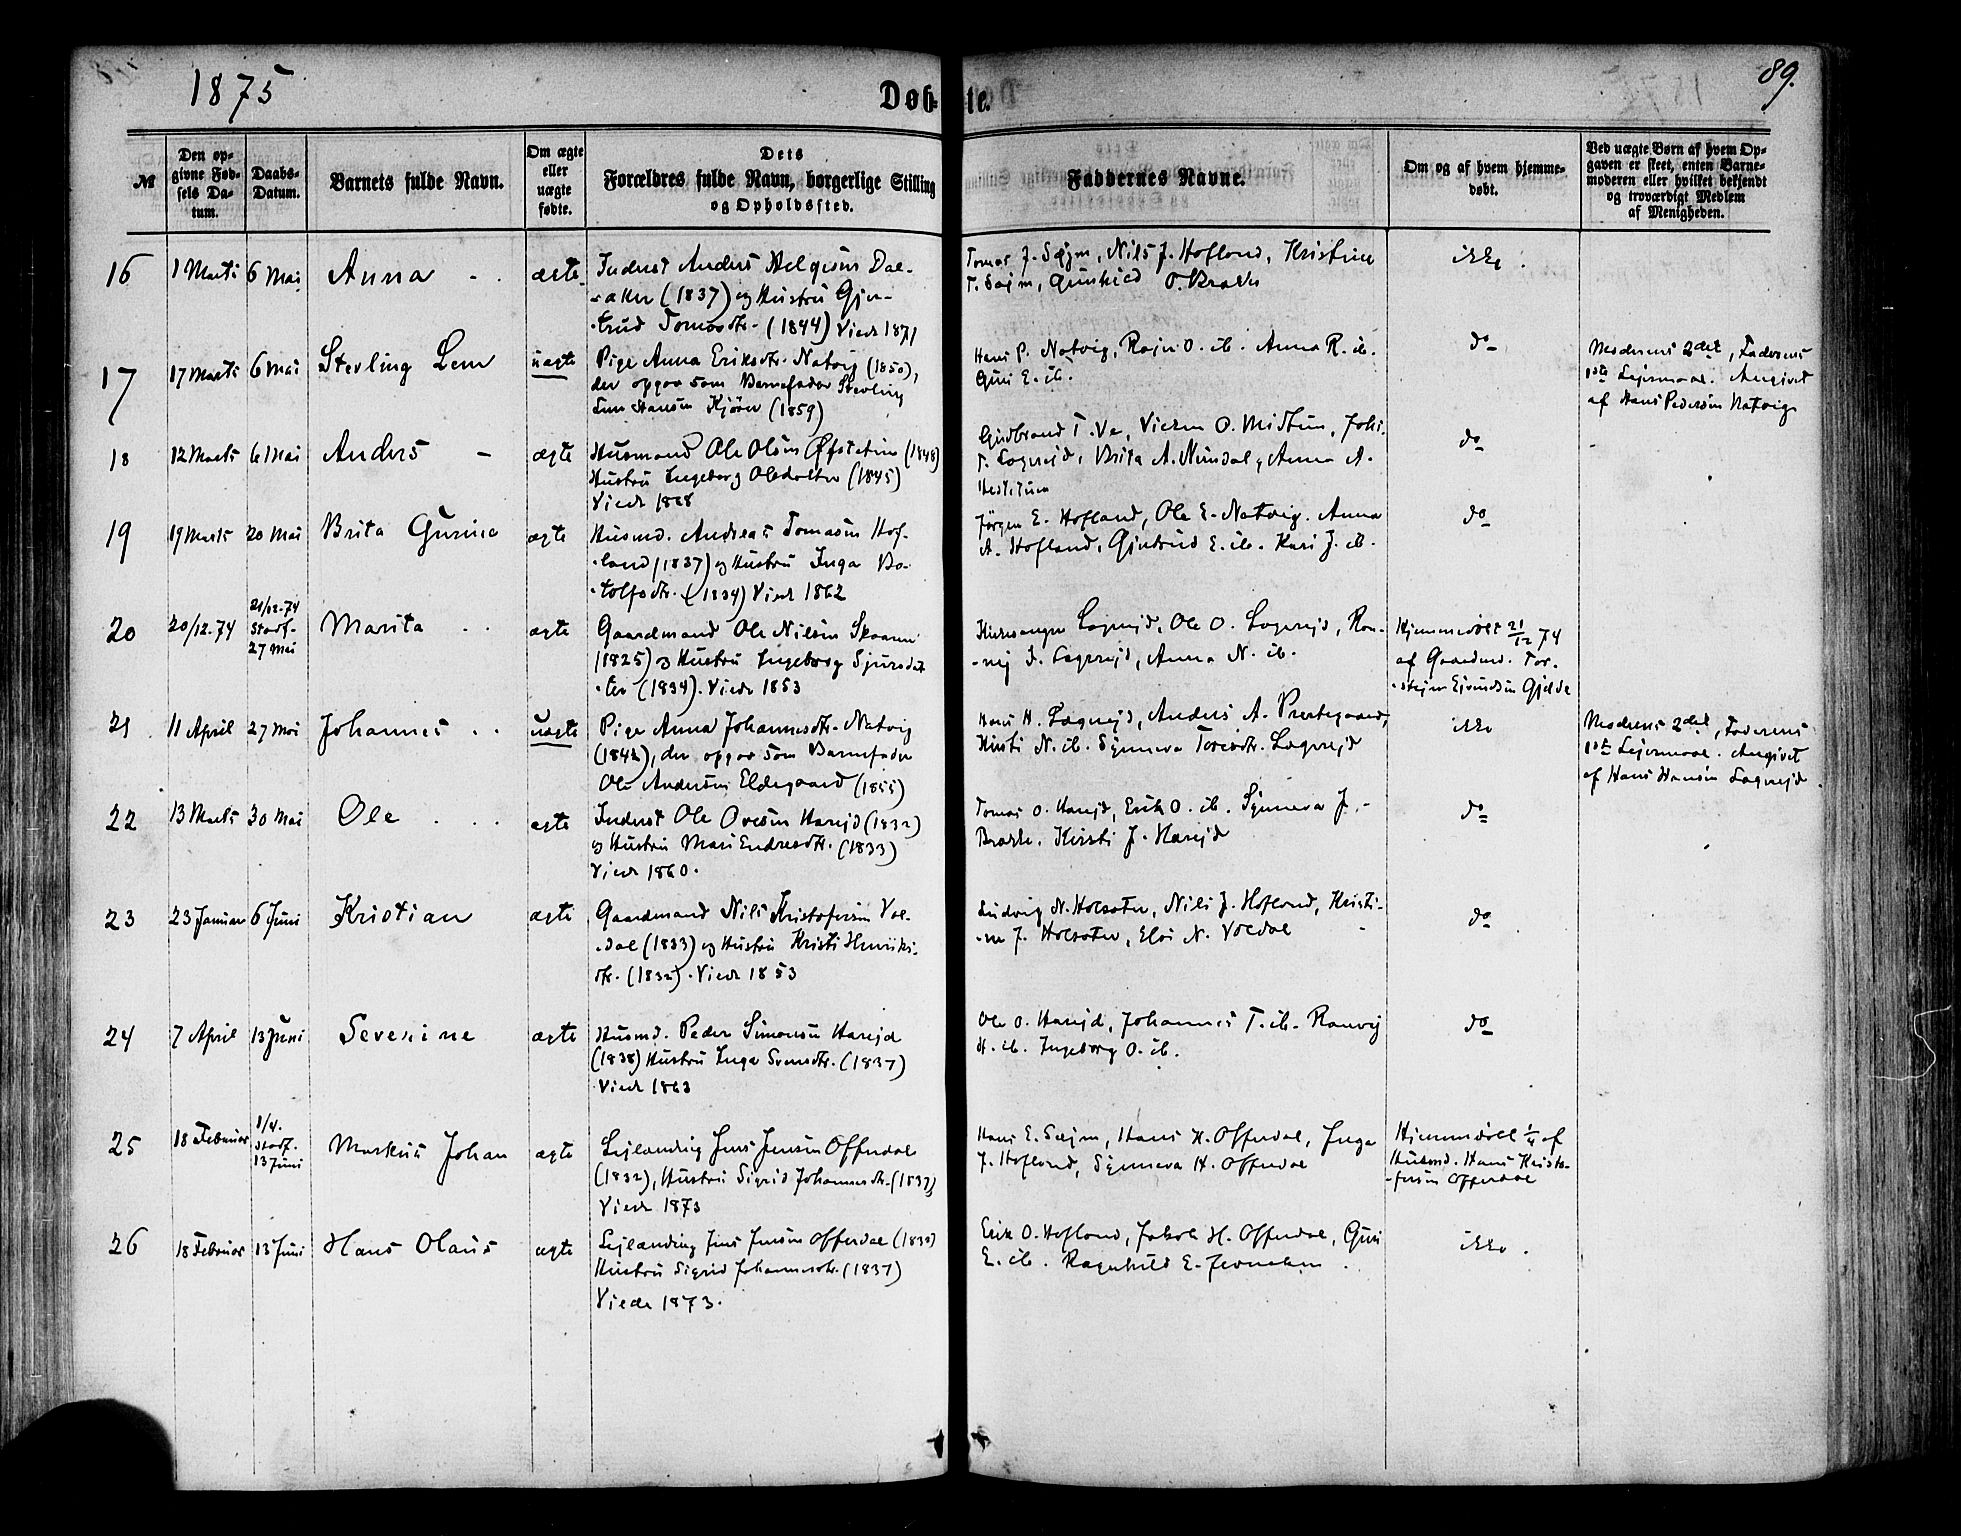 1875
Døb-
te.
89.
№
Den op-
givne Fød-
sels Da-
tum.
Daabs-
Datum.
Barnets fulde Navn.
Om ægte
eller
uægte
fødte.
Dets
Forældres fulde Navn, borgerlige Stilling
og Opholdssted.
Faddernes Navne.
Om og af hvem hjemme-
døbt.
Ved uægte Børn af hvem Op-
gaven er skeet, enten Barne-
moderen eller hvilket bekjendt
og troværdigt Medlem
af Menigheden.
16
1 Marts
6 Mai
Anna
ægte
Inderst Anders Helgesøn Dal-
-aker (1837) og Hustru Gjer-
-trud Tomasdtr. (1844) Viede 1871
Tomas J. Sæjm, Nils J. Hofland, Kristine
T. Sæjm, Gunhild O.
ikke.
17
17 Marts
6 Mai
Sterling Lem
uægte
Pige Anna Eriksdtr. Natvig (1850),
der opgav som Barnefader Sterling
Lem Hansøn Kjörn (1859)
Hans P. Natvig, O. ib. Anna R. ib.
Guri E. ib.
do
Moderens 2det, Faderens
1ste Lejermaal. Angivet
af Hans Pedersøn Natvig
18
12 Marts
6 Mai
Anders
ægte
Husmand Ole Olsøn (1848)
Hustru Ingeborg Olsdatter (1845)
Viede 1868
Gudbrand T. Ve, O. Midtun,
T. Lægrejd, Brita A. Nundal, Anna A.
do
19
19 Marts
20 Mai
Brita Gurine
ægte
Husmd. Andreas Tomasøn Hof-
-land (1837) og Hustru Inga Bo-
-tolfsdtr. (1834) Viede 1862
Jörgen E. Hofland, Ole E. Natvig. Anna
A. Hofland, Gjertrud E. ib. Kari J. ib.
do
20
20/12.74
21/12.74
Stadf.
27 Mai
Marita
ægte
Gaardmand Ole Nilsøn
(1825) og Hustru Ingeborg Sjursdat
-ter (1834). Viede 1853
Kirkesanger Lægrejd, Ole O. Lægrejd, Ran-
-vej J. Lægrejd, Anna N. ib.
Hjemmedöbt 21/12 74
af Gaardmd. Tor-
-stejn Ejvindsøn Gjelde
21
11 April
27 Mai
Johannes
uægte
Pige Anna Johannesdtr. Natvig
(1842), der opgav som Barnefader
Ole Andersøn Eldegaard (1855)
Hans H. Lægrejd, Anders A. Prestegaard,
Kirsti N. ib. Synneva Toresdtr. Lægrejd
ikke
Moderens 2det, Faderens
1ste Lejermaal. Angivet
af Hans Hansøn Lægrejd.
22
13 Marts
30 Mai
Ole
ægte
Inderst Ole Ovesøn Harejd (1832)
og Hustru Mari Endresdtr. (1833)
Viede 1860.
Tomas O. Harejd, Erik O. ib. Synneva J.
Kirsti J. Harejd
do
23
23 Januar
6 Juni
Kristian
ægte
Gaardmand Nils Kristofersøn Vol-
-dal (1833) og Hustru Kristi Henriks-
dtr. (1832). Viede 1853
Ludvig N. Holsæter, Nils J. Hofland, Kristi-
-ne J. Holsæter, Eloi N. Voldal
do
24
7 April
13 Juni
Severine
ægte
Husmd. Peder Simonsøn Harejd
(1838) Hustru Inga Svensdtr. (1837)
Viede 1863
Ole O. Harejd, Johannes T. ib. Ranvej
H. ib. Ingeborg O. ib.
do
25
18 Februar
1/4.
Stadf.
13 Juni
Markus Johan
ægte
Lejlænding Jens Jensøn Offerdal
(1832), Hustru Sigrid Johannesdtr. (1837)
Viede 1873
Hans E. Sæjm, Hans H. Offerdal, Inga
J. Hofland, Synneva H. Offerdal
Hjemmedöbt 1/4 af
Husmd. Hans Kristo-
-fersøn Offerdal
26
18 Februar
13 Juni
Hans Olaus
ægte
Lejlænding Jens Jensøn Offerdal (1832)
Hustru Sigrid Johannesdtr. (1837)
Viede 1873.
Erik O. Hofland, Jakob H. Offerdal, Guri
E. ib. Ragnhild E.
ikke.